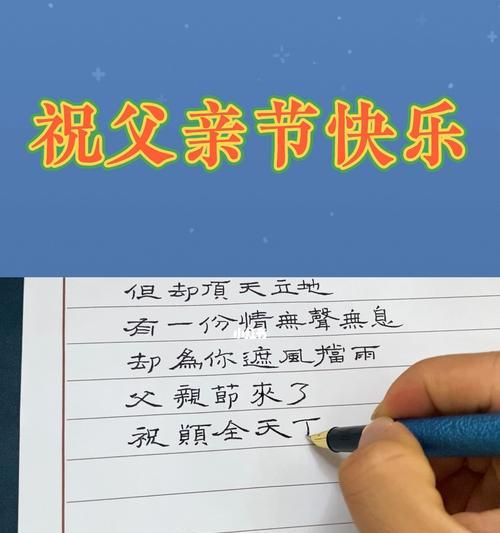 祝父亲节快乐
但却頂天立地
有一份情無聲無息
小红书
却為你遮風擋雨
父親節來了
祝願全天